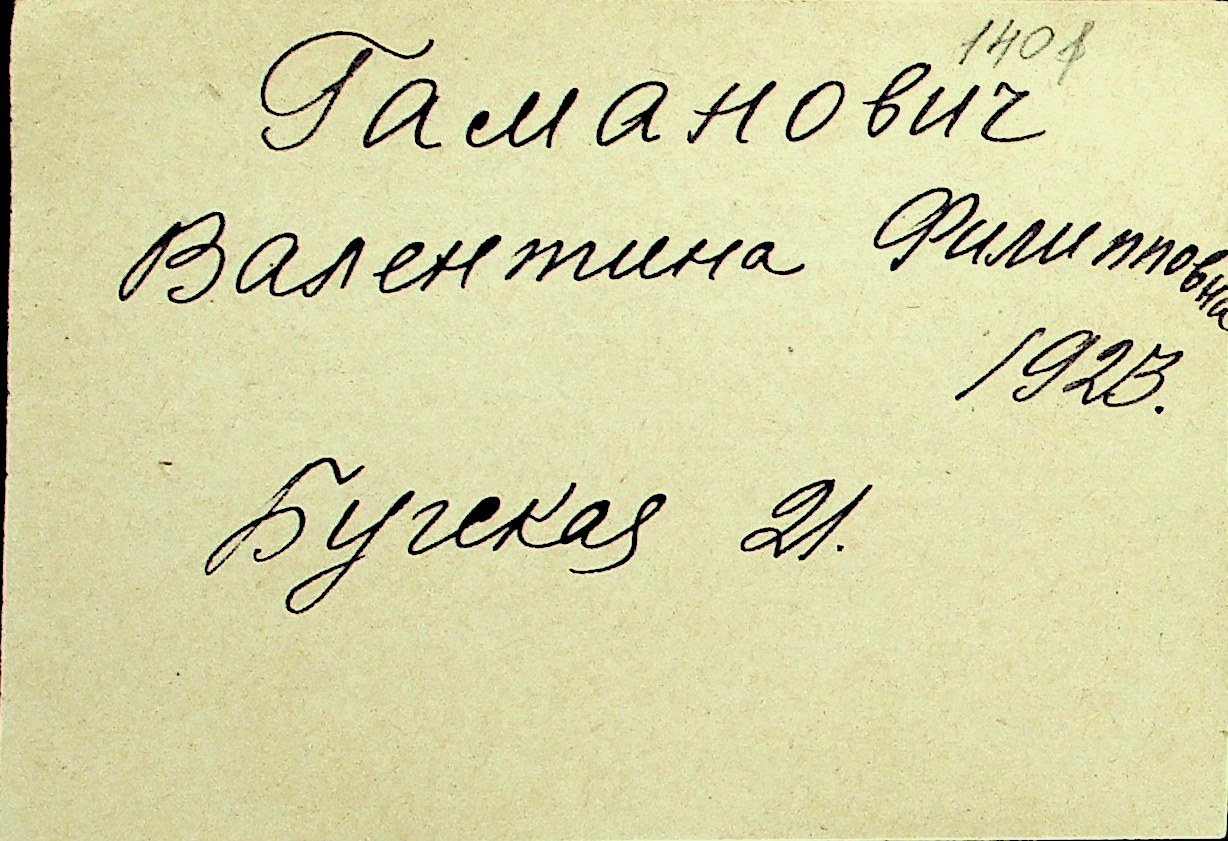 Гаманович
Валентина Филипповна
1923.
Бугская 21.